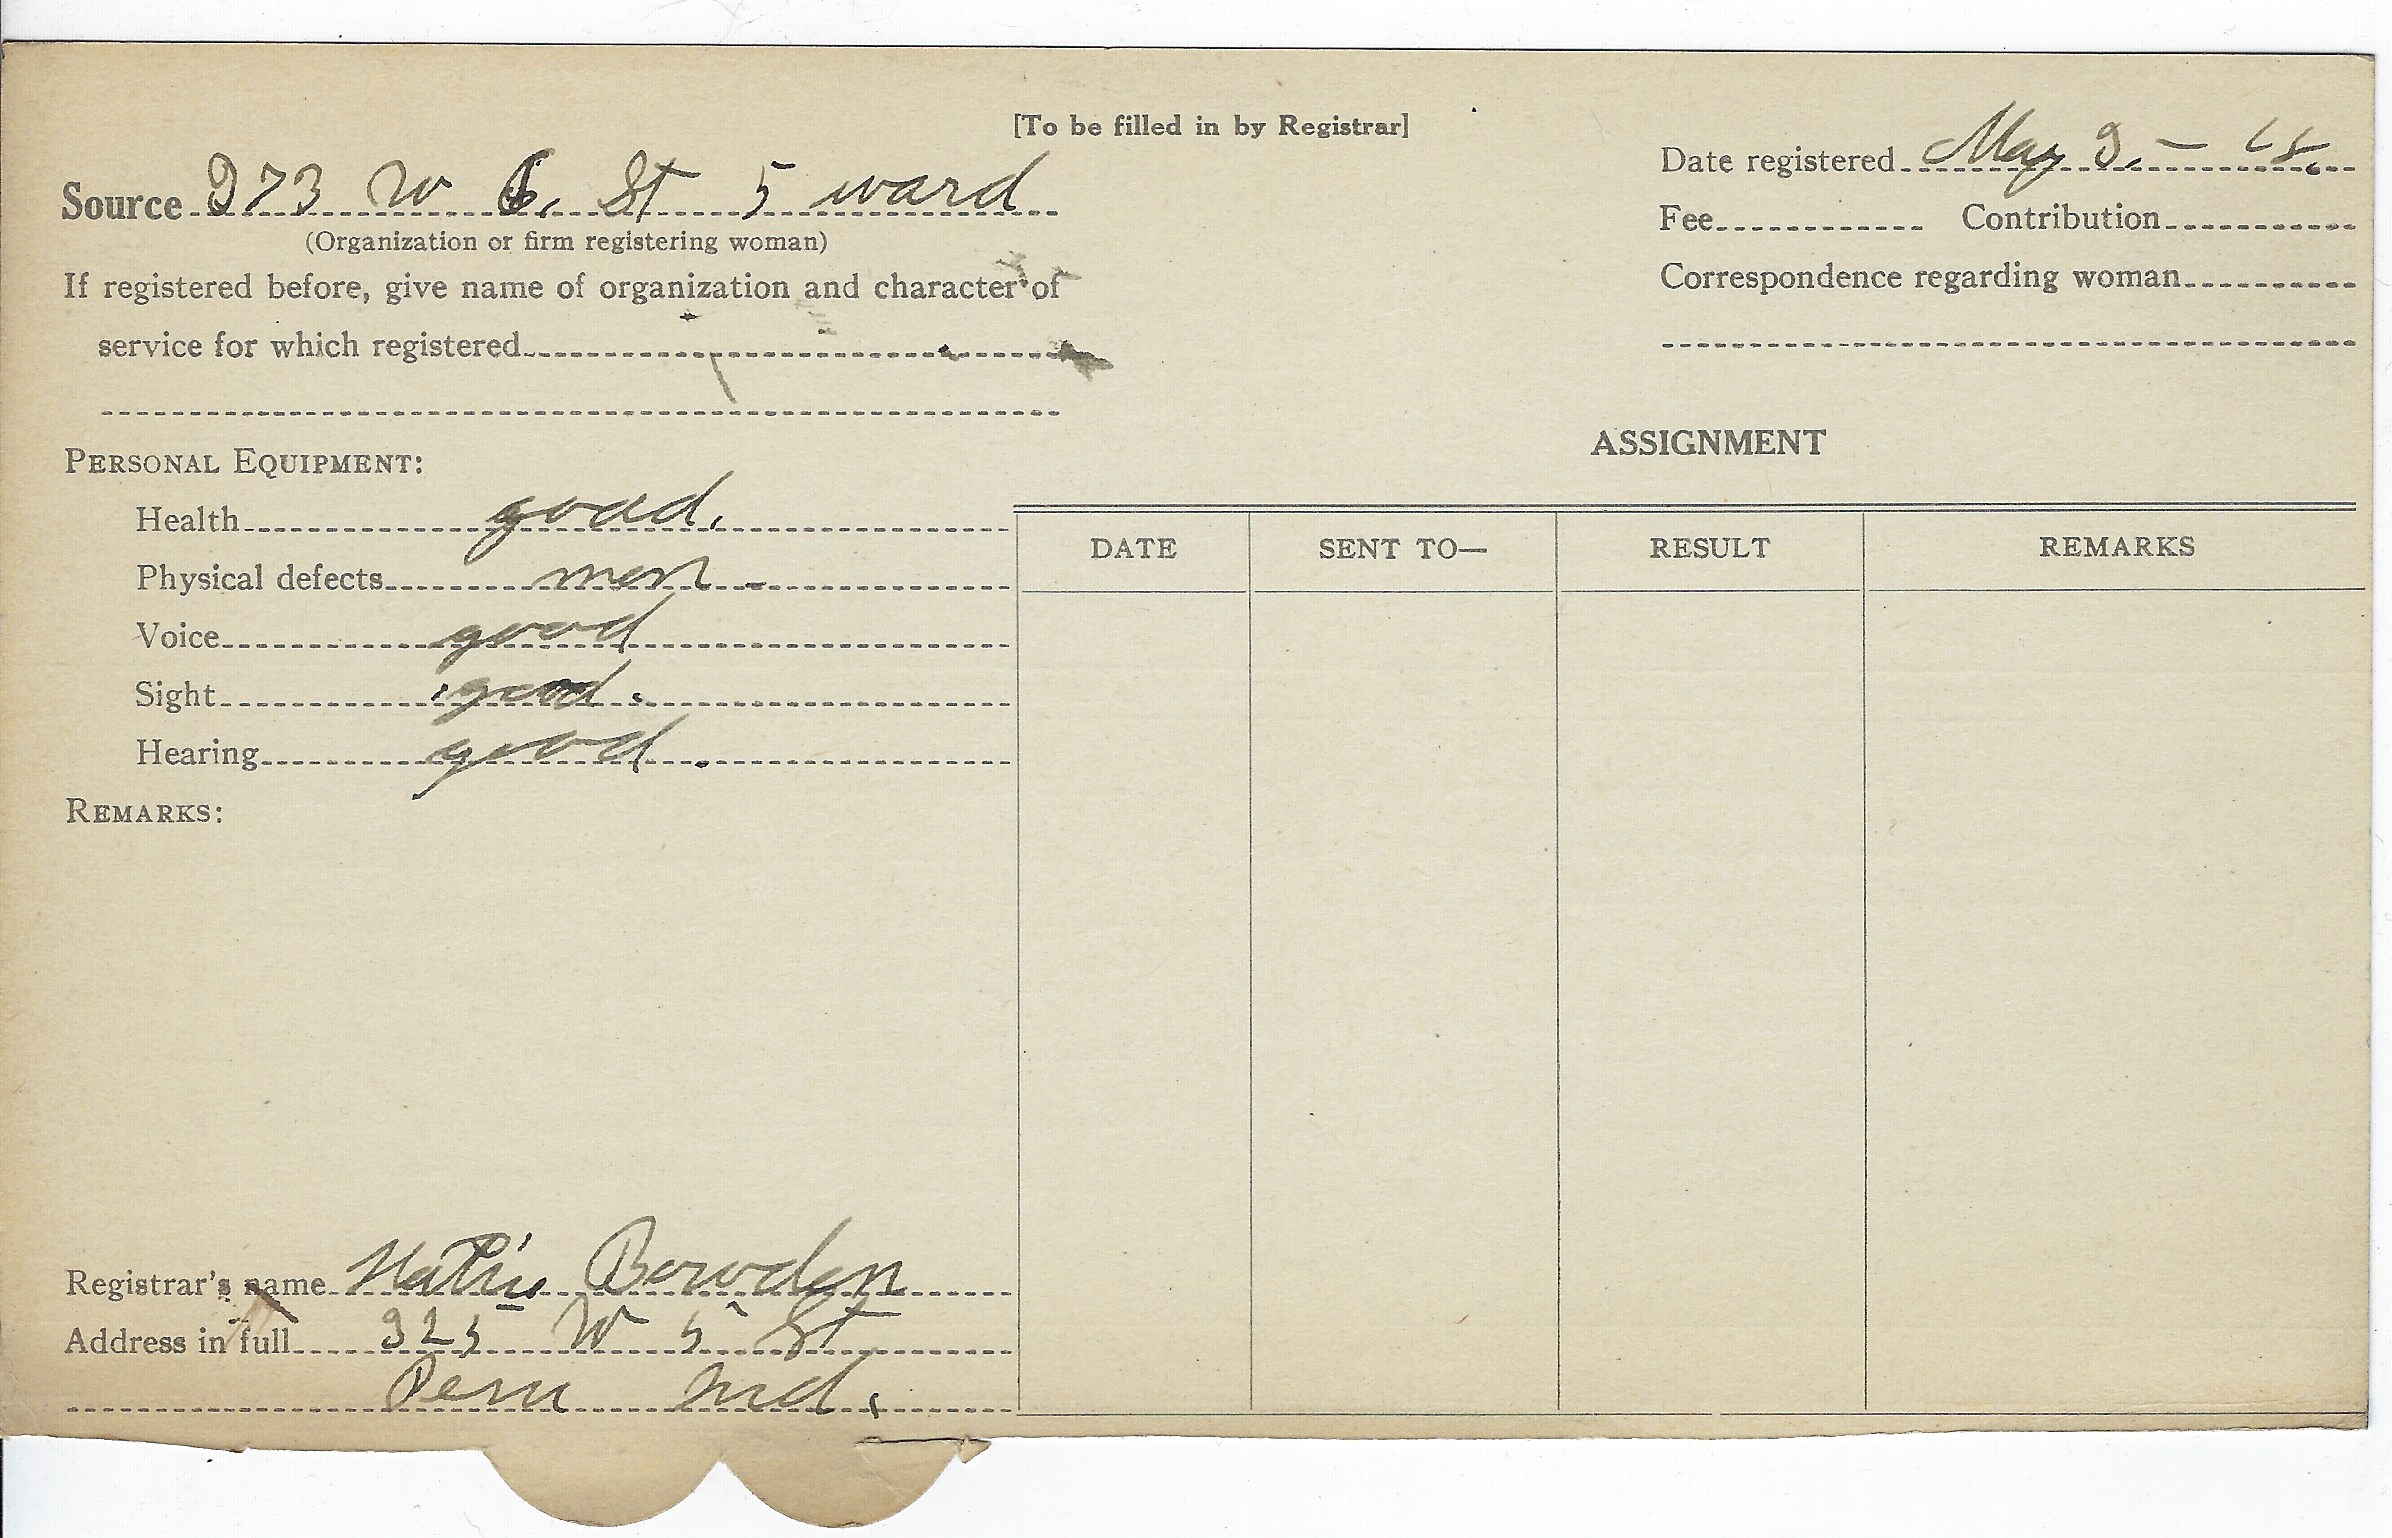 [To be filled in by Registrar]
Source 273 W 6. St 5 ward
(Organization or firm registering woman)
If registered before, give name of organization and character of
service for which registered
Date registered May 9. –
Fee Contribution
Correspondence regarding woman
PERSONAL EQUIPMENT:
Health good.
Physical defects non –
Voice good
Sight good.
Hearing good.
REMARKS:
ASSIGNMENT
DATE SENT TO— RESULT REMARKS
Registrar's name Hattie Bowden
Address in full 325 W 5 St
Peru Ind.